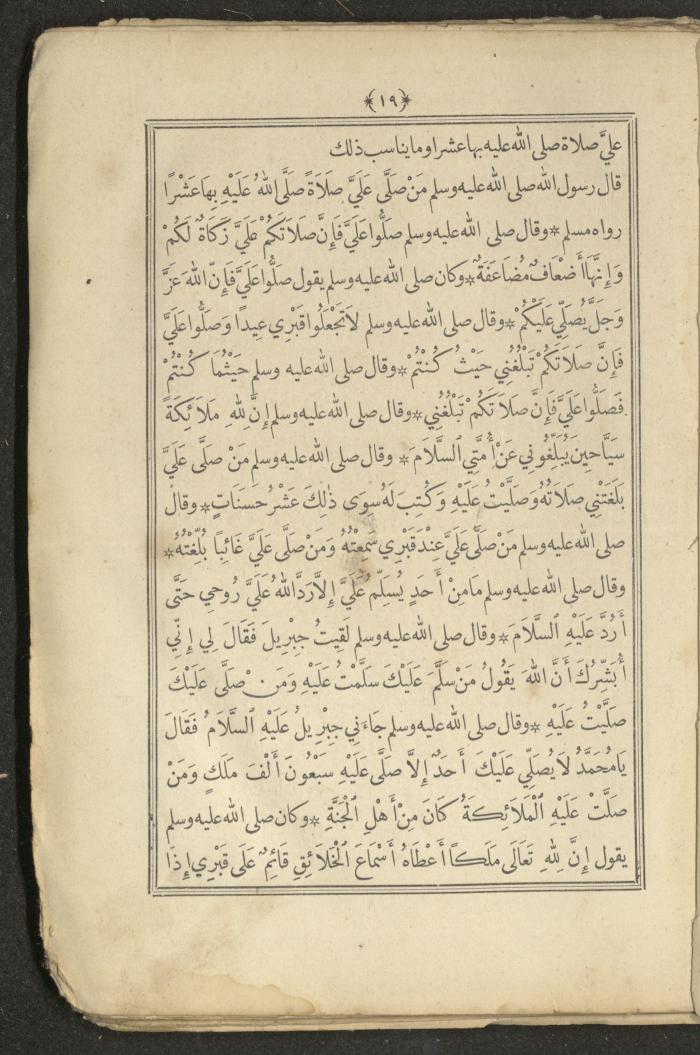 ﴿١٩﴾
عليّ صلاة صلى الله عليه بها عشرا وما يناسب ذلك
قال رسول الله صلى الله عليه وسلم مَنْ صَلَّى عَلَيَّ صَلَاةً صَلَّى اللهُ عَلَيْهِ بِهَا عَشْرًا
رواه مسلم * وقال صلى الله عليه وسلم صَلُّوا عَلَيَّ فَإِنَّ صَلَاتَكُمْ عَلَيَّ زَكَاةٌ لَكُمْ
وَإِنَّهَا أَضْعَافٌ مُضَاعَفَةٌ * وكان صلى الله عليه وسلم يقول صَلُّوا عَلَيَّ فَإِنَّ اللهَ عَزَّ
وَجَلَّ يُصَلِّي عَلَيْكُمْ * وقال صلى الله عليه وسلم لَا تَجْعَلُوا قَبْرِي عِيدًا وَصَلُّوا عَلَيَّ
فَإِنَّ صَلَاتَكُمْ تَبْلُغُنِي حَيْثُ كُنْتُمْ * وقال صلى الله عليه وسلم حَيْثُمَا كُنْتُمْ
فَصَلُّوا عَلَيَّ فَإِنَّ صَلَاتَكُمْ تَبْلُغُنِي * وقال صلى الله عليه وسلم إِنَّ لِلهِ مَلَائِكَةً
سَيَّاحِينَ يُبَلِّغُونِي عَنْ أُمَّتِي السَّلَامَ * وقال صلى الله عليه وسلم مَنْ صَلَّى عَلَيَّ
بَلَغَتْنِي صَلَاتُهُ وَصَلَّيْتُ عَلَيْهِ وَكُتِبَ لَهُ سِوَى ذٰلِكَ عَشْرُ حَسَنَاتٍ * وقال
صلى الله عليه وسلم مَنْ صَلَّى عَلَيَّ عِنْدَ قَبْرِي سَمِعْتُهُ وَمَنْ صَلَّى عَلَيَّ غَائِبًا بُلِّغْتُهُ *
وقال صلى الله عليه وسلم مَا مِنْ أَحَدٍ يُسَلِّمُ عَلَيَّ إِلَّا رَدَّ اللهُ عَلَيَّ رُوحِي حَتَّى
أَرُدَّ عَلَيْهِ السَّلَامَ * وقال صلى الله عليه وسلم لَقِيتُ جِبْرِيلَ فَقَالَ لِي إِنِّي
أُبَشِّرُكَ أَنَّ اللهَ يَقُولُ مَنْ سَلَّمَ عَلَيْكَ سَلَّمْتُ عَلَيْهِ وَمَنْ صَلَّى عَلَيْكَ
صَلَّيْتُ عَلَيْهِ * وقال صلى الله عليه وسلم جَاءَنِي جِبْرِيلُ عَلَيْهِ السَّلَامُ فَقَالَ
يَا مُحَمَّدُ لَا يُصَلِّي عَلَيْكَ أَحَدٌ إِلَّا صَلَّى عَلَيْهِ سَبْعُونَ أَلْفَ مَلَكٍ وَمَنْ
صَلَّتْ عَلَيْهِ الْمَلَائِكَةُ كَانَ مِنْ أَهْلِ الْجَنَّةِ * وكان صلى الله عليه وسلم
يقول إِنَّ لِلهِ تَعَالَى مَلَكًا أَعْطَاهُ أَسْمَاعَ الْخَلَائِقِ قَائِمٌ عَلَى قَبْرِي إِذَا